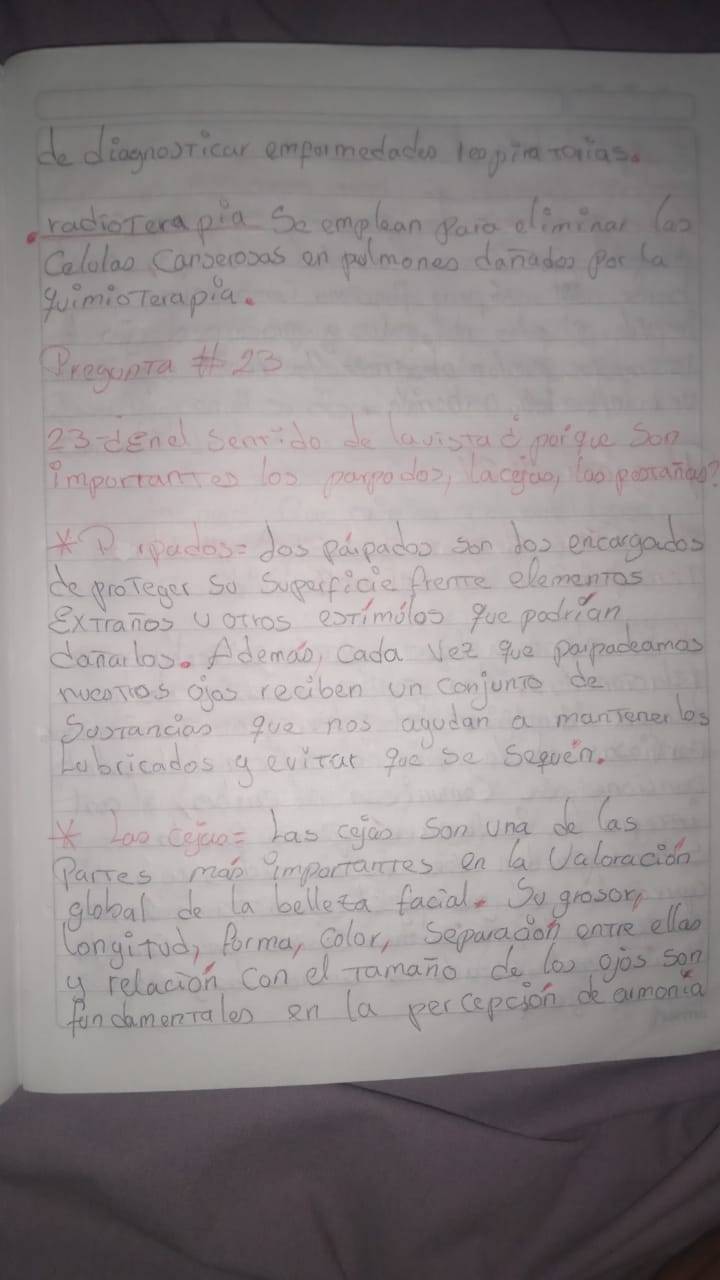 de diagnosticar empormedades respiratorias.
. radioterapia se emplean para eliminar las
Celulas Canserosas en pulmones dañados por la
quimioterapia.
Pregunta # 23
23-¿En el sentido de la vista ¿ porque son
importantes los parpados, la cejas, las pestañas?
* P rpados= Los párpados son los encargados
de proteger su superficie frente elementos
Extraños u otros estímulos que podrían
dañarlos. Además, cada vez que parpadeamos
nuestros ojos reciben un conjunto de
Sustancias que nos ayudan a mantener los
Lubricados y evitar que se sequen.
* Las cejas= Las cejas son una de las
Partes más importantes en la Valoración
global de la belleza facial. Su grosor,
longitud, forma, color, separación entre ellas
y relación con el tamaño de los ojos son
fundamentales en la percepción de armonía